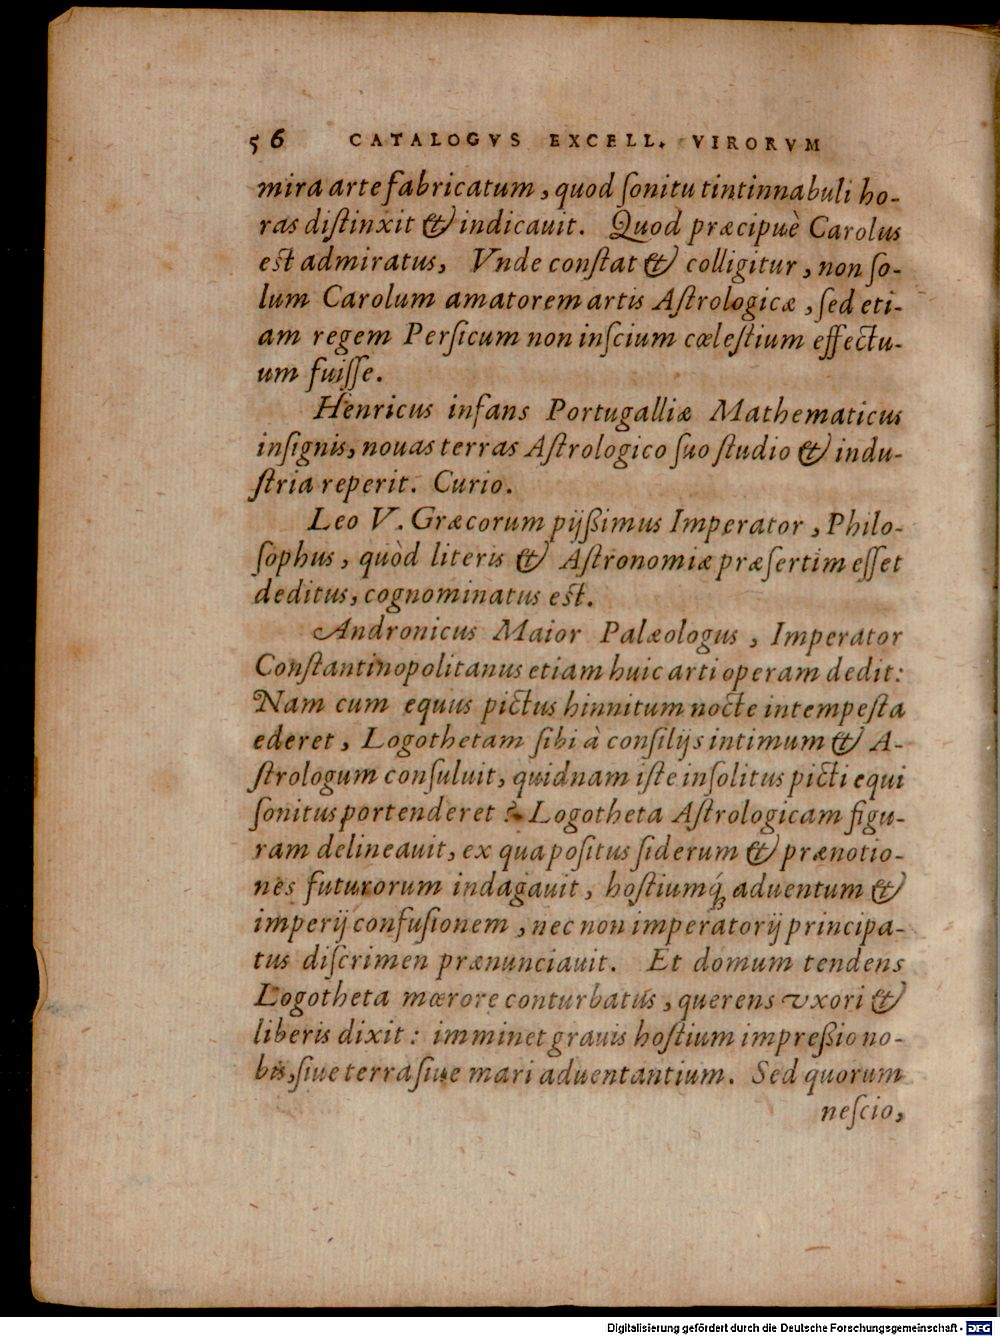 56 CATALOGVS EXCELL. VIRORVM
mira arte fabricatum, quod ſonitu tintinnabuli ho-
ras diſtinxit & indicauit. Quod præcipuè Carolus
est admiratus, Vnde conſtat & colligitur, non ſo-
lum Carolum amatorem artis Aſtrologicæ, ſed eti-
am regem Perſicum non inſcium cœleſtium effectu-
um fuiſſe.
Henricus infans Portugalliæ Mathematicus
inſignis, nouas terras Aſtrologico ſuo ſtudio & indu-
ſtria reperit. Curio.
Leo V. Græcorum pijßimus Imperator, Philo-
ſophus, quòd literis & Aſtronomiæ præſertim eſſet
deditus, cognominatus est.
Andronicus Maior Palæologus, Imperator
Conſtantinopolitanus etiam huic arti operam dedit:
Nam cum equus pictus hinnitum nocte intempeſta
ederet, Logothetam ſibi à conſilijs intimum & A-
ſtrologum conſuluit, quidnam iſte inſolitus picti equi
ſonitus portenderet? Logotheta Aſtrologicam figu-
ram delineauit, ex qua poſitus ſiderum & prænotio-
nes futurorum indagauit, hoſtiumq́; aduentum &
imperij confuſionem, nec non imperatorij principa-
tus diſcrimen prænunciauit. Et domum tendens
Logotheta mœrore conturbatus, querens vxori &
liberis dixit: imminet grauis hoſtium impreßio no-
bis, ſiue terra ſiue mari aduentantium. Sed quorum
neſcio,
Digitalisierung gefördert durch die Deutsche Forschungsgemeinschaft - DFG